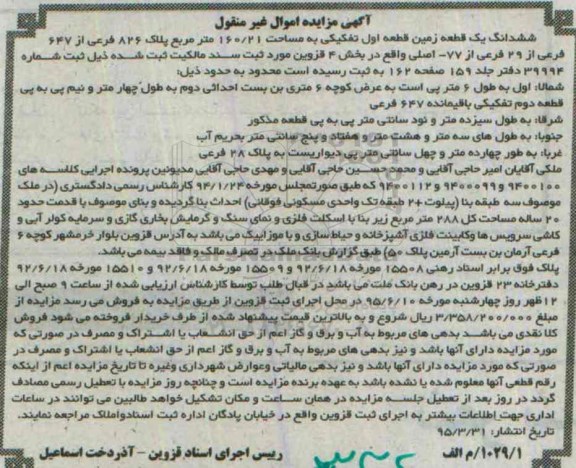 آگهی مزایده اموال غیر منقول
ششدانگ یک قطعه زمین قطعه اول تفکیکی به مساحت ۱۶۰/۲۱ متر مربع پلاک ۸۲۶ فرعی از ۶۴۷
فرعی از ۲۹ فرعی از ۷۷- اصلی واقع در بخش ۴ قزوین مورد ثبت سند مالکیت ثبت شده ذیل ثبت شماره
۳۹۹۹۴ دفتر جلد ۱۵۹ صفحه ۱۶۲ به ثبت رسیده است محدود به حدود ذیل:
شمالا: اول به طول ۶ متر پی است به عرض کوچه ۶ متری بن بست احداثی دوم به طول چهار متر و نیم پی به پی
قطعه دوم تفکیکی باقیمانده ۶۴۷ فرعی
شرقا: به طول سیزده متر و نود سانتی متر پی به پی قطعه مذکور
جنوبا: به طول های سه متر و هشت متر و هفتاد و پنج سانتی متر بحریم آب
غربا: به طور چهارده متر و چهل سانتی متر پی دیواریست به پلاک ۲۸ فرعی
ملکی آقایان امیر حاجی آقایی و محمدحسین حاجی آقایی و مهدی حاجی آقایی مدیونین پرونده اجرایی کلاسه های
۹۴۰۰۱۰۰ و ۹۴۰۰۰۹۹ و ۹۴۰۰۱۱۲ که طبق صورتمجلس مورخه ۹۴/۱/۲۴ کارشناس رسمی دادگستری (در ملک
موصوف سه طبقه بنا (پیلوت +۲ طبقه تک واحدی مسکونی فوقانی) احداث بنا گردیده و بنای موصوف با قدمت حدود
۲۰ ساله مساحت کل ۲۸۸ متر مربع زیر بنا با اسکلت فلزی و نمای سنگ و گرمایش بخاری گازی و سرمایه کولر آبی و
کاشی سرویس ها وکابینت فلزی آشپزخانه و حیاط سازی و با موزاییک می باشد به آدرس قزوین بلوار خرمشهر کوچه ۶
فرعی آرمان بن بست آرمین پلاک ۵۰) طبق گزارش بانک ملک در تصرف مالک و فاقد بیمه می باشد.
پلاک فوق برابر اسناد رهنی ۱۵۵۰۸ مورخه ۹۲/۶/۱۸ و ۱۵۵۰۹ مورخه ۹۲/۶/۱۸ و ۱۵۵۱۰ مورخه ۹۲/۶/۱۸
دفترخانه ۲۳ قزوین در رهن بانک ملت می باشد در قبال طلب توسط کارشناس ارزیابی شده از ساعت ۹ صبح الی
۱۲ ظهر روز چهارشنبه مورخه ۹۵/۶/۱۰ در محل اجرای ثبت قزوین از طریق مزایده به فروش می رسد مزایده از
مبلغ ۳/۳۵۸/۲۰۰/۰۰۰ ریال شروع و به بالاترین قیمت پیشنهاد شده از طرف خریدار فروخته می شود فروش
کلا نقدی می باشد بدهی های مربوط به آب و برق و گاز اعم از حق انشعاب یا اشتراک و مصرف در صورتی که
مورد مزایده دارای آنها باشد و نیز بدهی های مربوط به آب و برق و گاز اعم از حق انشعاب یا اشتراک و مصرف در
صورتی که مورد مزایده دارای آنها باشد و نیز بدهی مالیاتی وعوارض شهرداری وغیره تا تاریخ مزایده اعم از اینکه
رقم قطعی آنها معلوم شده یا نشده باشد به عهده برنده مزایده است و چنانچه روز مزایده با تعطیل رسمی مصادف
گردد در روز بعد از تعطیل جلسه مزایده در همان ساعت و مکان تشکیل خواهد طالبین می توانند در ساعات
اداری جهت اطلاعات بیشتر به اجرای ثبت قزوین واقع در خیابان پادگان اداره ثبت اسنادواملاک مراجعه نمایند.
تاریخ انتشار: ۹۵/۳/۳۱
رییس اجرای اسناد قزوین - آذردخت اسماعیل
۱۰۲۹/۱/م الف